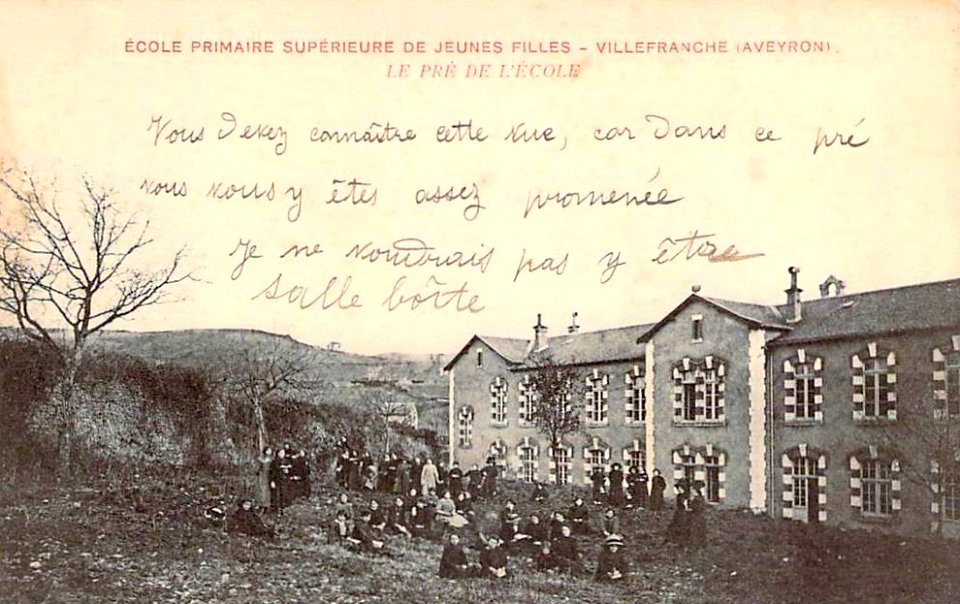 ÉCOLE PRIMAIRE SUPÉRIEURE DE JEUNES FILLES - VILLEFRANCHE (AVEYRON).
LE PRÉ DE L'ÉCOLE
Vous devez connaître cette vue, car dans ce pré
vous vous y êtes assez promenée
Je ne voudrais pas y être
salle boîte